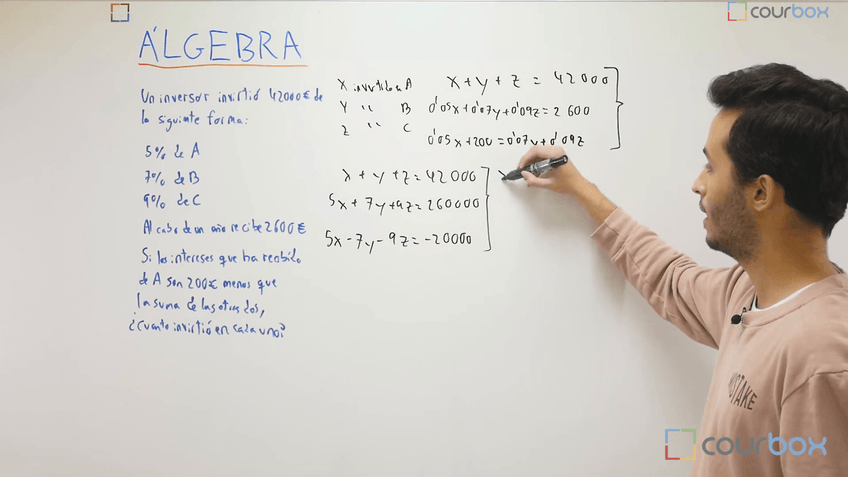 courbox
ÁLGEBRA
Un inversor invirtió 42000€ de
la siguiente forma:
5% de A
7% de B
9% de C
Al cabo de un año recibe 2600€
Si los intereses que ha recibido
de A son 200€ menos que
la suma de los otros dos,
¿Cuanto invirtió en cada uno?
X invertido a A
Y " B
Z " C
x+y+z = 42000
0'05x+0'07y+0'09z=2600
0'05x+200=0'07y+0'09z
x+y+z=42000
5x+7y+9z=260000
5x-7y-9z=-20000
x
MISTAKE
courbox